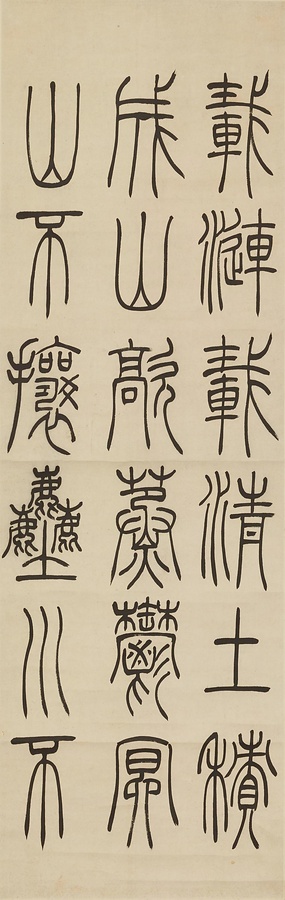 載漣載清土積
成山歊蒸鬱冥
山不攘塵川不